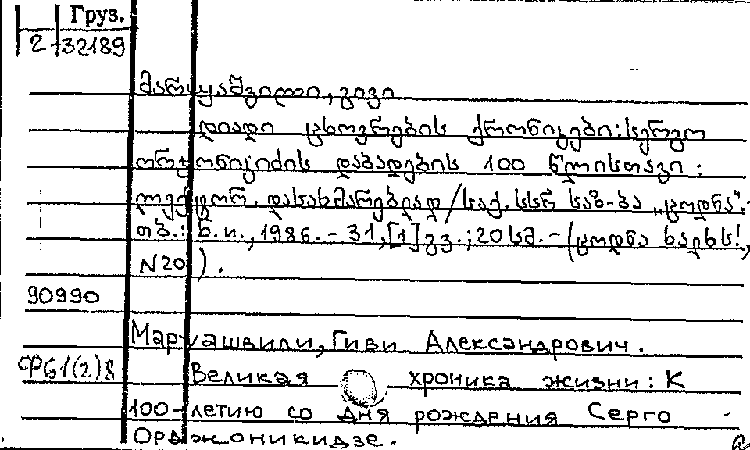 Груз.
2-32189
მარუაშვილი, გივი
დიადი ცხოვრების ქრონიკები: სერგო
ორჯონიკიძის დაბადების 100 წლისთავი:
ლექტორ. დასახმარებლად/საქ. სსრ საზ-ბა „ცოდნა“.-
თბ.: ს.ი., 1986. - 31, [1] გვ.; 20 სმ. - (ცოდნა ხალხს!,
N20).
90990
Маруашвили, Гиви Александрович.
ФБ1(2)8
Великая хроника жизни: К
100-летию со дня рождения Серго
Орджоникидзе.